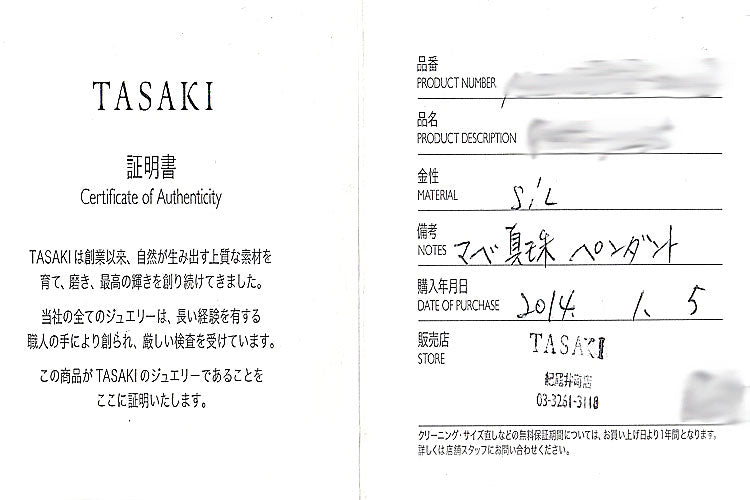 TASAKI
証明書
Certificate of Authenticity
TASAKIは創業以来、自然が生み出す上質な素材を
育て、磨き、最高の輝きを創り続けてきました。
当社の全てのジュエリーは、長い経験を有する
職人の手により創られ、厳しい検査を受けています。
この商品がTASAKIのジュエリーであることを
ここに証明いたします。
品番
PRODUCT NUMBER
品名
PRODUCT DESCRIPTION
金性
MATERIAL SiL
備考
NOTES マベ真珠 ペンダント
購入年月日
DATE OF PURCHASE 2014. 1. 5
販売店
STORE
TASAKI
紀尾井町店
03-3261-3118
クリーニング・サイズ直しなどの無料保証期間については、お買い上げ日より1年間となります。
詳しくは店舗スタッフにお問い合わせください。